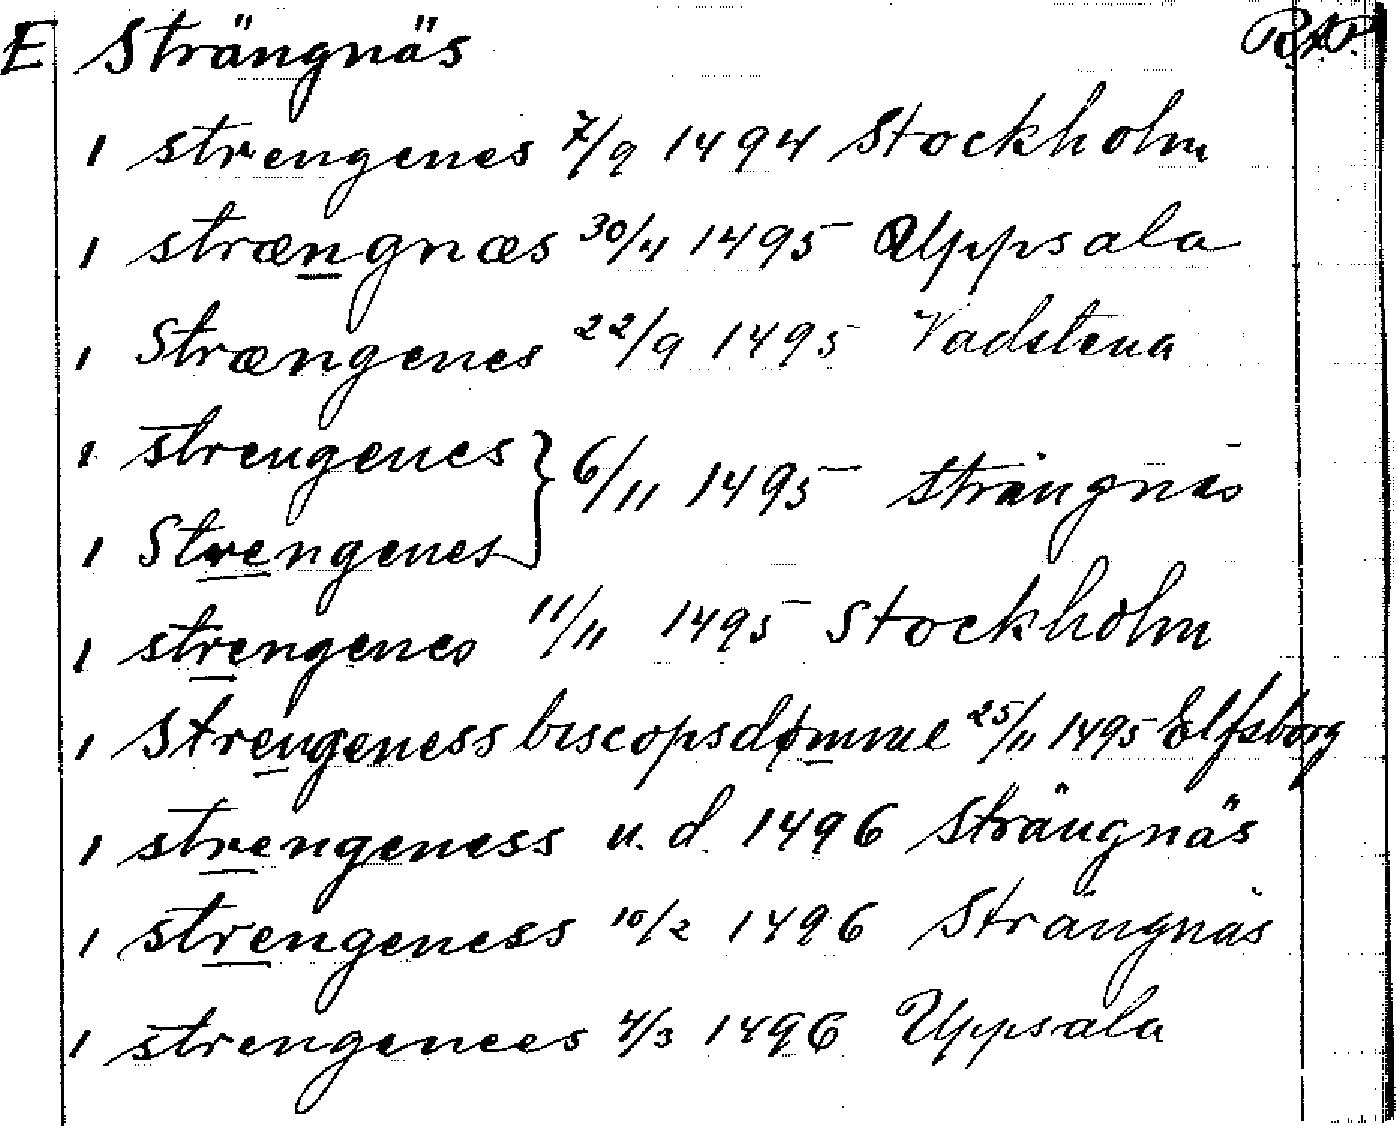 E Strängnäs R.A.P.
1 strengenes 7/9 1494 Stockholm
1 strængnæs 30/4 1495 Uppsala
1 Strængenes 22/9 1495 Vadstena
1 strengenes
} 6/11 1495 Strängnäs
1 Strengenes
1 strengenes 11/11 1495 Stockholm
1 Strengeness biscopsdømme 25/11 1495 Elfsborg
1 strengeness u. d. 1496 Strängnäs
1 strengeness 10/2 1496 Strängnäs
1 strengenees 4/3 1496 Uppsala